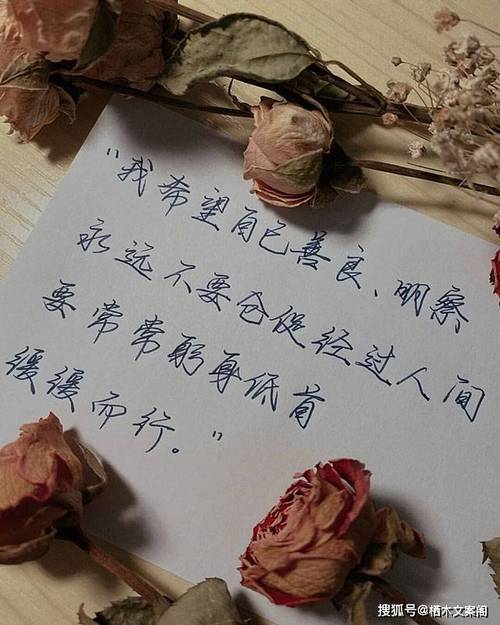 "我希望自己善良、明察
永远不要仓促经过人间
要常常躬身低首
缓缓而行。"
搜狐号@栖木文案阁